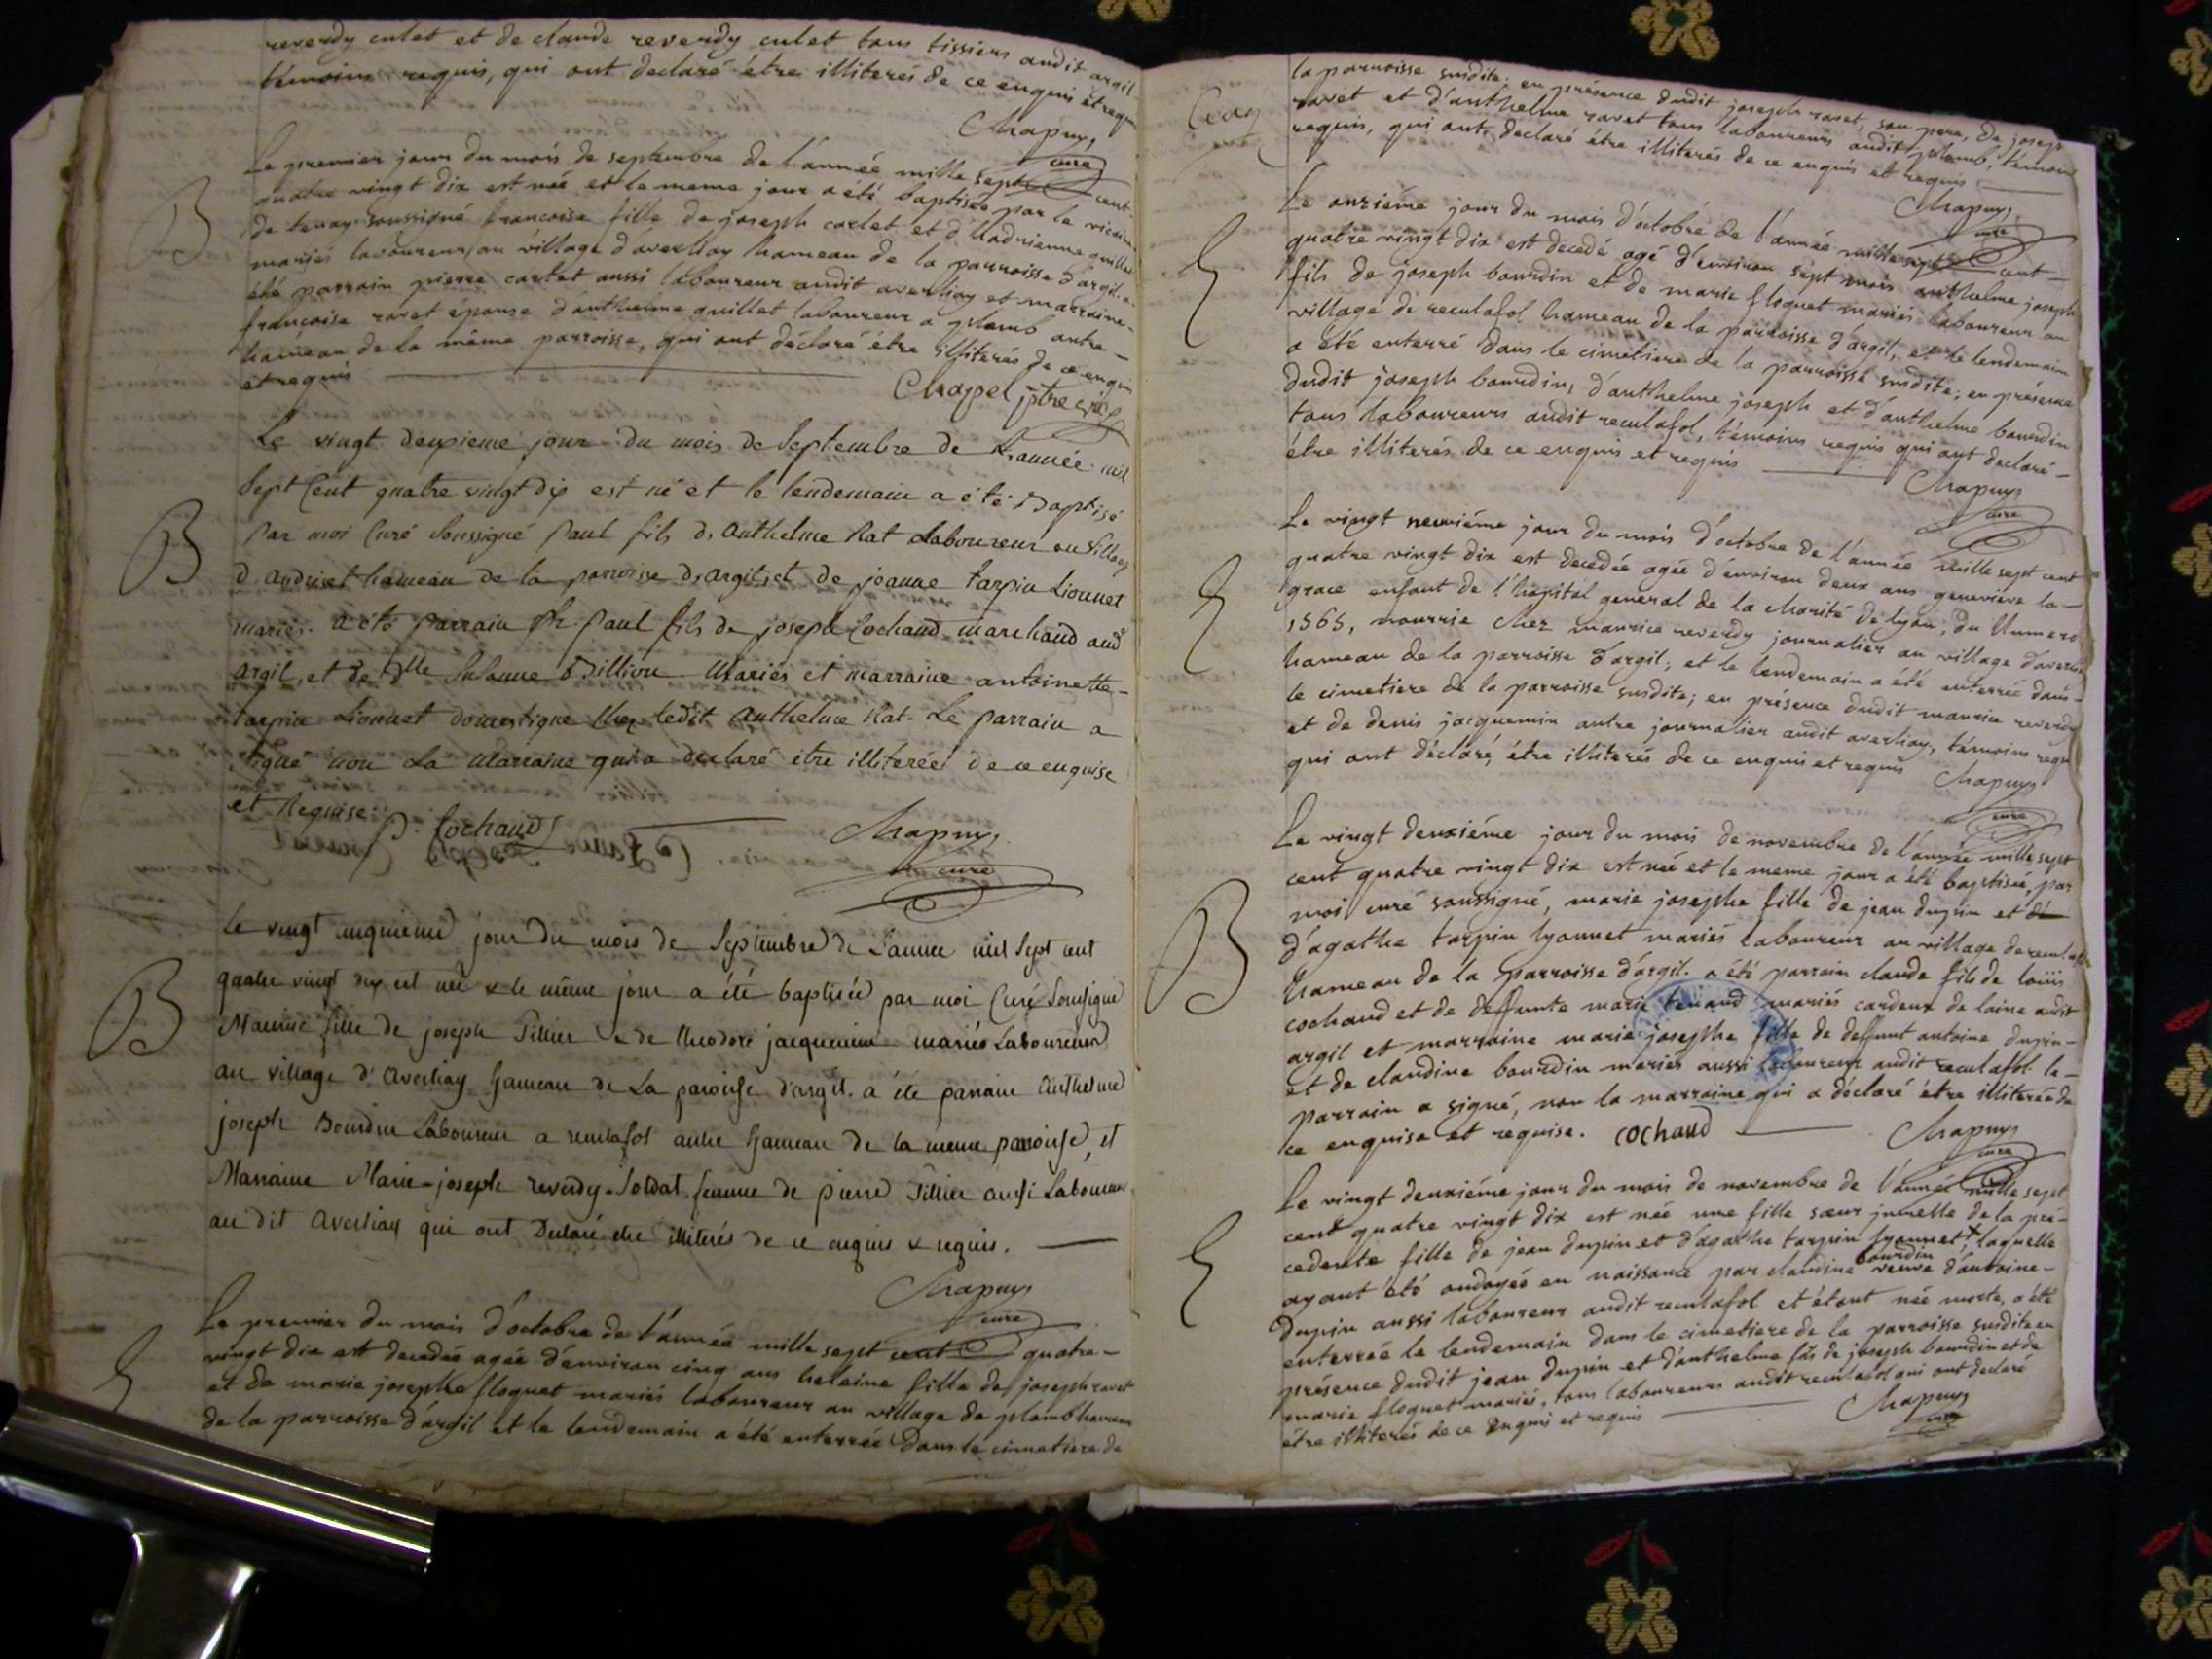 reverdy culet et de claude reverdy culet tous tissiers audit argil
témoins requis, qui ont declaré être illiterés de ce enquis et requis
Chapuy
curé
B
Le premier jour du mois de septembre de l'année mille sept cent
quatre vingt dix est née et le meme jour a été baptisée par le vicaire
de tenay soussigné francoise fille de joseph carlet et d'hadrienne quillet
mariés laboureurs au village d'averliay hameau de la parroisse d'argil. a
été parrain pierre carlet aussi laboureur audit averliay et marraine-
françoise ravet épouse d'anthelme quillet laboureur a plomb autre-
hameau de la même parroisse, qui ont déclaré être illiterés de ce enquis
et requis
Chappel ptre vic
B
Le vingt deuxieme jour du mois de Septembre de L'année mil
Sept Cent quatre vingt dix est né et le lendemain a été Baptisé
Par moi Curé Soussigné Paul fils d'Anthelme Rat Laboureur au village
d'andriset hameau de la parroisse d'argil, et de jeanne Tarpin Lionnet
mariés. a été parrain Sr. Paul fils de joseph Cochaud marchand aud
argil, et de Dlle Susanne Billion Mariés et marraine antoinette-
tarpin Lionnet domestique chez ledit Anthelme Rat. Le parrain a
signé non La Marraine qui a declaré être illiterée de ce enquise
et Requise.
P. Cochaud
Chapuy
curé
B
Le vingt cinquieme jour du mois de Septembre de L'année mil Sept cent
quatre vingt dix est née & le même jour a été baptisée par moi Curé Soussigné
Maurise fille de joseph Tillier & de theodore jacquemin mariés Laboureurs
au village d'Averliay hameau de La paroisse d'argil. a été parrain Anthelme
joseph Bourdin Laboureur a reculafol autre hameau de la meme paroisse, et
Marraine Marie-joseph reverdy-Soldat femme de pierre Tillier aussi Laboureur
au dit Averliay qui ont Declaré etre illiterés de ce enquis & requis.
Chapuy
curé
Le premier du mois d'octobre de l'année mille sept cent quatre-
vingt dix est decedée agée d'environ cinq ans heleine fille de joseph ravet
et de marie josephe floquet mariés laboureur au village de plomb hameau
de la parroisse d'argil et le lendemain a été enterrée dans le cimetiere de
la parroisse susdite; en présence dudit joseph ravet, son pere, de joseph
ravet et d'anthelme ravet tous laboureurs audit plomb, témoins
requis, qui ont declaré être illiterés de ce enquis et requis
Chapuy
curé
Le onziéme jour du mois d'octobre de l'année mille sept cent-
quatre vingt dix est decedé agé d'environ sept mois anthelme joseph
fils de joseph bourdin et de marie floquet mariés laboureur au
village de reculafol hameau de la parroisse d'argil, et le lendemain
a été enterré dans le cimetiere de la parroisse susdite; en présence
dudit joseph bourdin, d'anthelme joseph et d'anthelme bourdin
tous laboureurs audit reculafol, témoins requis qui ont declaré-
être illiterés de ce enquis et requis
Chapuy
curé
Le vingt neuviéme jour du mois d'octobre de l'année mille sept cent
quatre vingt dix est decedée agée d'environ deux ans genevieve la-
grace enfant de l'hopital general de la charité de lyon, du Numero
1565, nourrie chez maurice reverdy journalier au village d'averliay
hameau de la parroisse d'argil; et le lendemain a été enterrée dans-
le cimetiere de la parroisse susdite; en présence dudit maurice reverdy
et de denis jacquemin autre journalier audit averliay, témoins requis
qui ont déclaré être illiterés de ce enquis et requis
Chapuy
curé
B
Le vingt deuxiéme jour du mois de novembre de l'année mille sept
cent quatre vingt dix est née et le meme jour a été baptisée, par
moi curé soussigné, marie josephe fille de jean dupin et d'
d'agathe tarpin lyonnet mariés laboureur au village de reculafol
hameau de la parroisse d'argil. a été parrain claude fils de louis
cochaud et de deffunte marie tenand mariés cardeur de laine audit
argil et marraine marie josephe fille de deffunt antoine dupin-
et de claudine bourdin mariés aussi laboureur audit reculafol. le-
parrain a signé, non la marraine qui a déclaré être illiterée de
ce enquise et requise. cochaud
Chapuy
curé
Le vingt deuxiéme jour du mois de novembre de l'année mille sept
cent quatre vingt dix est née une fille sœur jumelle de la pré-
cedente fille de jean dupin et d'agathe tarpin lyonnet, laquelle
ayant été ondoyée en naissance par claudine bourdin veuve d'antoine-
dupin aussi laboureur audit reculafol et étant née morte, a été
enterrée le lendemain dans le cimetiere de la parroisse susdite en
présence dudit jean dupin et d'anthelme fils de joseph bourdin et de
marie floquet mariés, tous laboureurs audit reculafol qui ont declaré
être illiterés de ce enquis et requis
Chapuy
curé